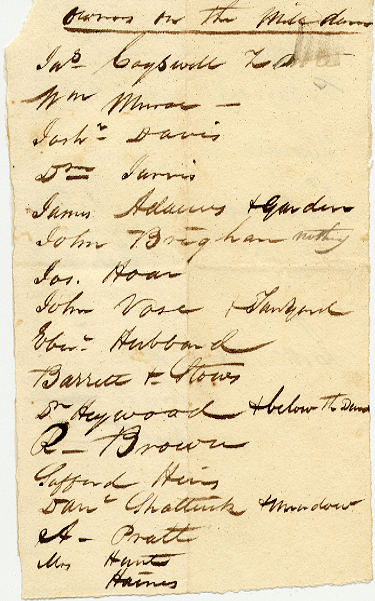 owners on the Mill dam
Jas. Cogswell
Wm Munroe –
Joshr. Davis
Dn Jarvis
James Adams & Garden
John Brigham nothing
Jos. Hoar
John Vose & Tanyard
Ebenr. Hubbard
Barrett & Stows
Dr Heywood & below the Dam
R – Brown
Safford Heirs
Danl Shattuck & meadow
A – Pratt
Mrs Hunt
Haines